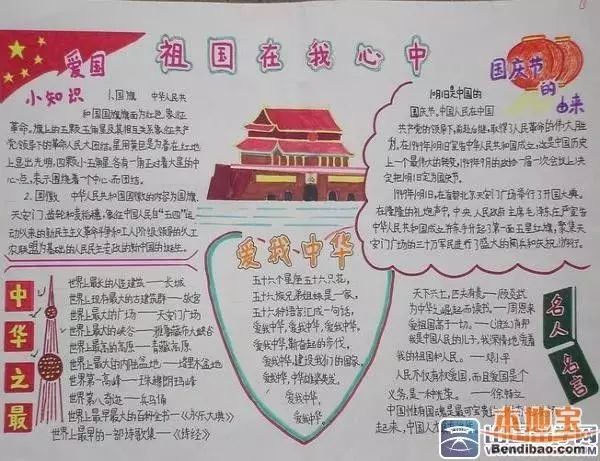 祖国在我心中
爱国
小知识
1.国旗 中华人民共
和国国旗旗面为红色,象征
革命。旗上的五颗五角星及其相互关系象征共产
党领导下的革命人民大团结。星用黄色是为着在红地
上显出光明,四颗小五角星各有一角正对着大星的中
心点,表示围绕着一个中心而团结。
2.国徽 中华人民共和国国徽的内容为国旗、
天安门、齿轮和麦稻穗,象征中国人民自“五四”运
动以来的新民主主义革命斗争和工人阶级领导的以工
农联盟为基础的人民民主专政的新中国的诞生。
国庆节
的
由来
10月1日是中国的
国庆节,中国人民在中国
共产党的领导下,前赴后继,取得了人民革命的伟大胜
利。在1949年10月1日宣告中华人民共和国成立,这是中国历史
上一个最伟大的转变。1949年9月的政协一届一次会议上决
定把10月1日定为国庆节。
1949年10月1日,在首都北京天安门广场举行了开国大典。
在隆隆的礼炮声中,中央人民政府主席毛泽东庄严宣告
中华人民共和国成立并亲手升起了第一面五星红旗。聚集天
安门广场的三十万军民进行了盛大的阅兵和庆祝游行。
中华之最
世界上最长的人造建筑——长城
世界上现存最大的古建筑群——故宫
世界上最大的广场——天安门广场
世界上最大的峡谷——雅鲁藏布大峡谷
世界上最高的高原——青藏高原
世界上最大的内陆盆地——塔里木盆地
世界第一高峰——珠穆朗玛峰
世界第一奇迹——兵马俑
世界上最早最大的百科全书——《永乐大典》
世界上最早的一部诗歌集——《诗经》
爱我中华
五十六个星座五十六只花,
五十六族兄弟姐妹是一家,
五十六种语言汇成一句话,
爱我中华,爱我中华,爱我中华,
爱我中华,奋起的步伐,
爱我中华,建设我们的国家,
爱我中华,中华雄姿英发,
爱我中华,
爱我中华。
名人名言
天下兴亡,匹夫有责——顾炎武
为中华之崛起而读书——周恩来
爱祖国高于一切。——
是中国人民的儿子,我深情地爱着
我的祖国和人民。——邓小平
人民不仅有权爱国,而且爱国是个
义务,是一种光荣。——徐特立
中国惟有国魂是最可宝贵
起来,中国人才
本地宝
Bendibao.com